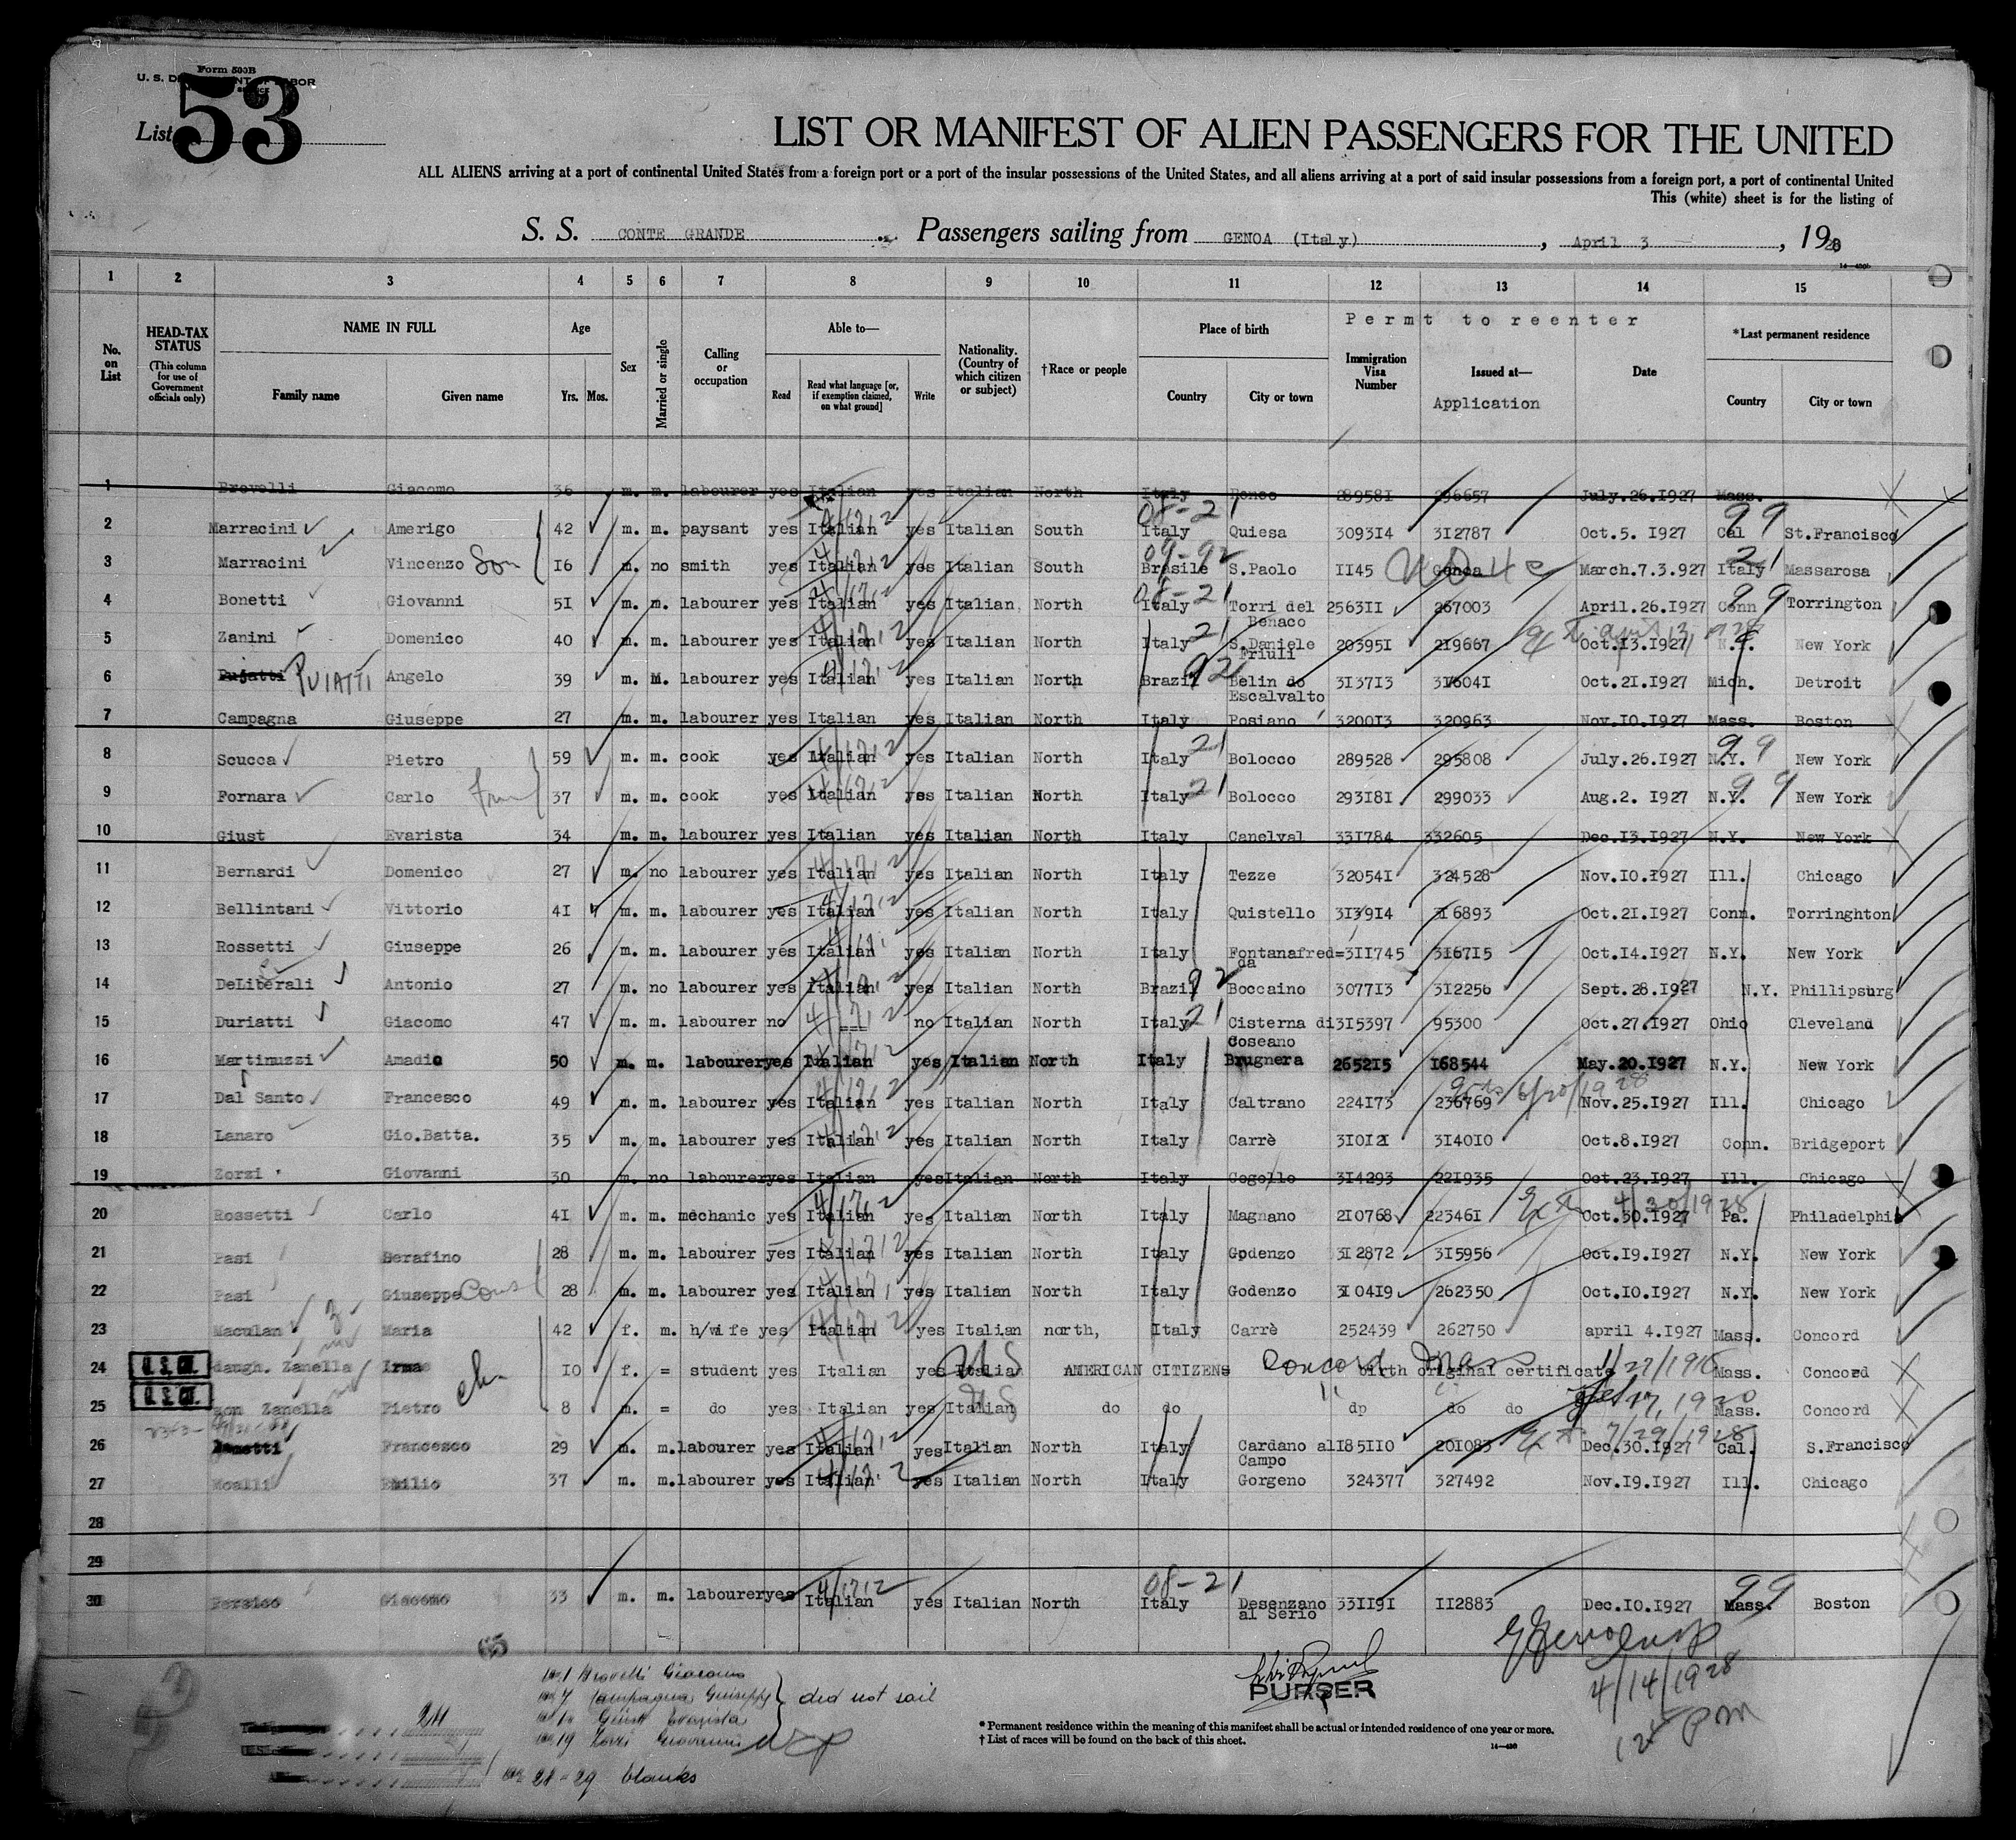 Form 500B
U. S. DEPARTMENT OF LABOR
List 53
LIST OR MANIFEST OF ALIEN PASSENGERS FOR THE UNITED
ALL ALIENS arriving at a port of continental United States from a foreign port or a port of the insular possessions of the United States, and all aliens arriving at a port of said insular possessions from a foreign port, a port of continental United
This (white) sheet is for the listing of
S. S. CONTE GRANDE Passengers sailing from GENOA (Italy), April 3, 1928
1 2 3 4 5 6 7 8 9 10 11 12 13 14 15
No. on List
HEAD-TAX STATUS (This column for use of Government officials only)
NAME IN FULL Family name Given name
Age Yrs. Mos.
Sex
Married or single
Calling or occupation
Able to— Read Read what language [or, if exemption claimed, on what ground] Write
Nationality. (Country of which citizen or subject)
†Race or people
Place of birth Country City or town
Permt to reenter
Immigration Visa Number
Issued at— Application
Date
*Last permanent residence Country City or town
1 Brovelli Giacomo 36 m. m. labourer yes Italian yes Italian North Italy Ronco 289581 296657 July.26.1927 Mass.
2 Marracini Amerigo 42 m. m. paysant yes Italian yes Italian South Italy 08-21 Quiesa 309314 312787 Oct.5. 1927 Cal 99 St.Francisco
3 Marracini Vincenzo Son 16 m. no smith yes Italian yes Italian South Brasile 09-92 S.Paolo 1145 Genoa March.7.3.927 Italy 21 Massarosa
4 Bonetti Giovanni 51 m. m. labourer yes Italian yes Italian North Italy 08-21 Torri del Benaco 256311 267003 April.26.1927 Conn 99 Torrington
5 Zanini Domenico 40 m. m. labourer yes Italian yes Italian North Italy 21 S.Daniele Friuli 203951 219667 Oct.13.1927 N.Y. New York
6 Pujatti PUIATTI Angelo 39 m. M. labourer yes Italian yes Italian North Brazil 92 Belin do Escalvalto 313713 316041 Oct.21.1927 Mich. Detroit
7 Campagna Giuseppe 27 m. m. labourer yes Italian yes Italian North Italy Posiano 320013 320963 Nov.10.1927 Mass. Boston
8 Scucca Pietro 59 m. m. cook yes Italian yes Italian North Italy 21 Bolocco 289528 295808 July.26.1927 N.Y. 99 New York
9 Fornara Carlo 37 m. m. cook yes Italian yes Italian North Italy 21 Bolocco 293181 299033 Aug.2. 1927 N.Y. 99 New York
10 Giust Evarista 34 m. m. labourer yes Italian yes Italian North Italy Canelval 331784 332605 Dec.13.1927 N.Y. New York
11 Bernardi Domenico 27 m. no labourer yes Italian yes Italian North Italy Tezze 320541 324528 Nov.10.1927 Ill. Chicago
12 Bellintani Vittorio 41 m. m. labourer yes Italian yes Italian North Italy Quistello 313914 316893 Oct.21.1927 Conn. Torringhton
13 Rossetti Giuseppe 26 m. m. labourer yes Italian yes Italian North Italy Fontanafred=da 311745 316715 Oct.14.1927 N.Y. New York
14 DeLiberali Antonio 27 m. no labourer yes Italian yes Italian North Brazil 92 Boccaino 307713 312256 Sept.28.1927 N.Y. Phillipsurg
15 Duriatti Giacomo 47 m. m. labourer no == no Italian North Italy 21 Cisterna di Coseano 315397 95300 Oct.27.1927 Ohio Cleveland
16 Martinuzzi Amadio 50 m. m. labourer yes Italian yes Italian North Italy Brugnera 265215 168544 May.20.1927 N.Y. New York
17 Dal Santo Francesco 49 m. m. labourer yes Italian yes Italian North Italy Caltrano 224173 236769 Nov.25.1927 Ill. Chicago
18 Lanaro Gio.Batta. 35 m. m. labourer yes Italian yes Italian North Italy Carrè 310121 314010 Oct.8.1927 Conn. Bridgeport
19 Zorzi Giovanni 30 m. no labourer yes Italian yes Italian North Italy Cogollo 314293 221935 Oct.23.1927 Ill. Chicago
20 Rossetti Carlo 41 m. m. mechanic yes Italian yes Italian North Italy Magnano 210768 223461 Ext 4/30/1928 Oct.30.1927 Pa. Philadelphia
21 Pasi Serafino 28 m. m. labourer yes Italian yes Italian North Italy Godenzo 312872 315956 Oct.19.1927 N.Y. New York
22 Pasi Giuseppe Cous 28 m. m. labourer yes Italian yes Italian North Italy Godenzo 310419 262350 Oct.10.1927 N.Y. New York
23 Maculan Maria 42 f. m. h/wife yes Italian yes Italian north, Italy Carrè 252439 262750 april 4.1927 Mass. Concord
24 U.S.CIT. daugh. Zanella Irma 10 f. = student yes Italian yes Italian US AMERICAN CITIZENS Concord Mass birth original certificate Mass. Concord
25 U.S.CIT. son Zanella Pietro 8 m. = do yes Italian yes Italian US do do dp do do 1920 Mass. Concord
26 Zanetti Francesco 29 m. m. labourer yes Italian yes Italian North Italy Cardano al Campo 185110 201083 Ext 7/29/1928 Dec.30.1927 Cal. S.Francisco
27 Moalli Emilio 37 m. m. labourer yes Italian yes Italian North Italy Gorgeno 324377 327492 Nov.19.1927 Ill. Chicago
28
29
30 Persico Giacomo 33 m. m. labourer yes Italian yes Italian North Italy 08-21 Desenzano al Serio 331191 112883 Dec.10.1927 Mass. 99 Boston
No 1 Brovelli Giacomo
No 7 Campagna Guiseppe
No 10 Giust Evarista
No 19 Zorzi Giovanni
did not sail
No 28-29 blanks
PURSER
4/14/1928
PM
* Permanent residence within the meaning of this manifest shall be actual or intended residence of one year or more.
† List of races will be found on the back of this sheet.